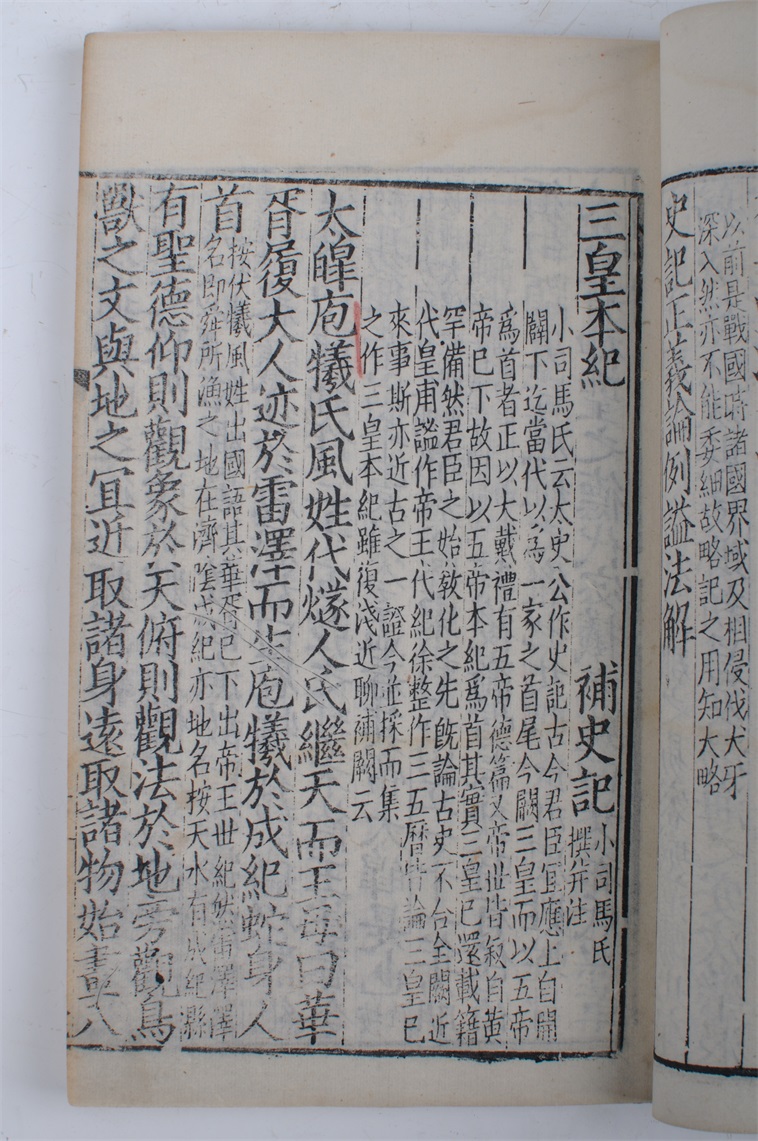 以前是戰國時諸國界域及相侵伐犬牙
深入然亦不能委細故略記之用知大略
史記正義論例謚法解
三皇本紀 補史記
小司馬氏
撰并注
小司馬氏云太史公作史記古今君臣宜應上自開
闢下迄當代以爲一家之首尾今闕三皇而以五帝
爲首者正以大戴禮有五帝德篇又帝世皆叙自黃
帝已下故因以五帝本紀爲首其實三皇已還載籍
罕備然君臣之始敎化之先旣論古史不合全闕近
代皇甫謐作帝王代紀徐整作三五曆皆論三皇已
來事斯亦近古之一證今並採而集
之作三皇本紀雖復淺近聊補闕云
太皞庖犧氏風姓代燧人氏繼天而王母曰華
胥履大人迹於雷澤而生庖犧於成紀蛇身人
首
按伏犧風姓出國語其華胥已下出帝王世紀然雷澤澤
名即舜所漁之地在濟陰成紀亦地名按天水有成紀縣
有聖德仰則觀象於天俯則觀法於地旁觀鳥
獸之文與地之宜近取諸身遠取諸物始畫八